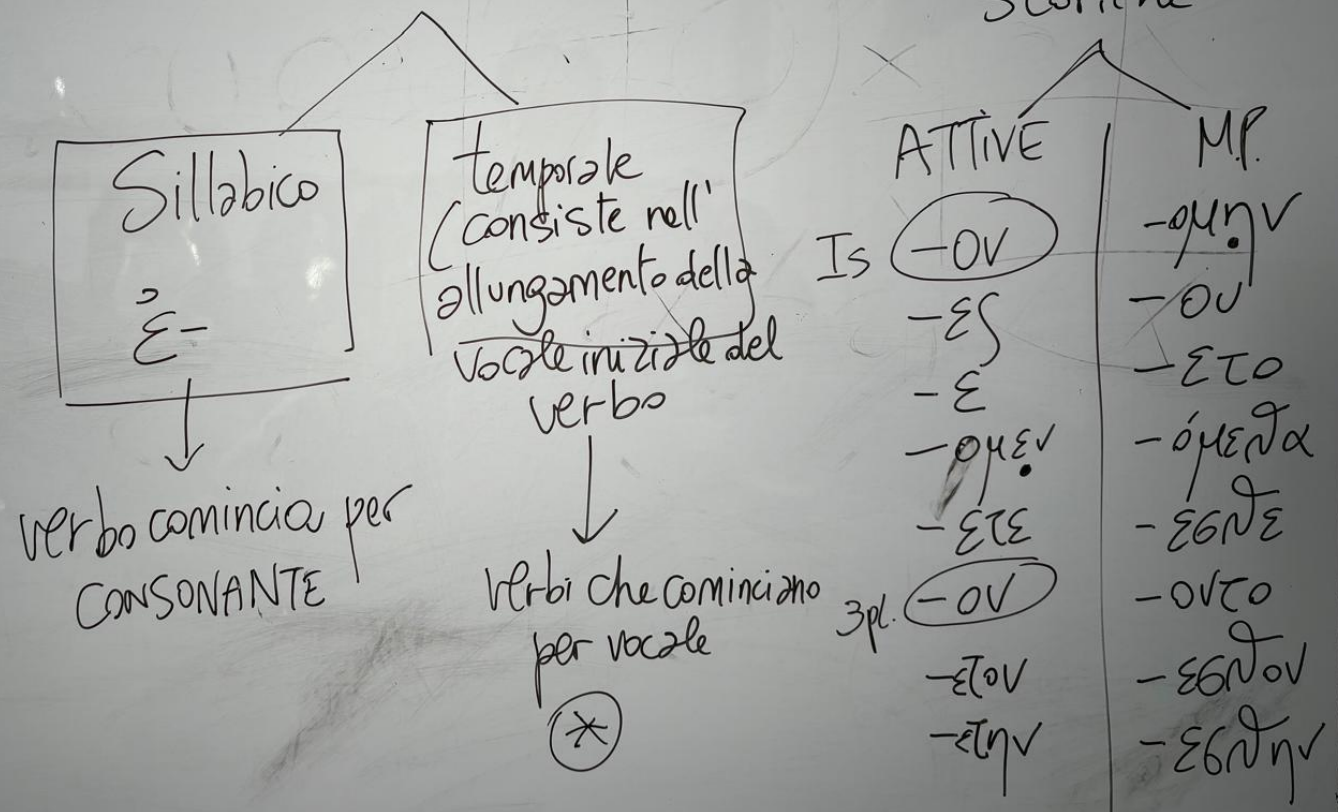 Sillabico
ἐ-
verbo comincia per
CONSONANTE
temporale
(consiste nell'
allungamento della
vocale iniziale del
verbo
verbi che cominciano
per vocale
*
ATTIVE
Is -ον
-ες
-ε
-ομεν
-ετε
3pl. -ον
-ετον
-ετην
M.P.
-ομην
-ου
-ετο
-όμεθα
-εσθε
-οντο
-εσθον
-εσθην